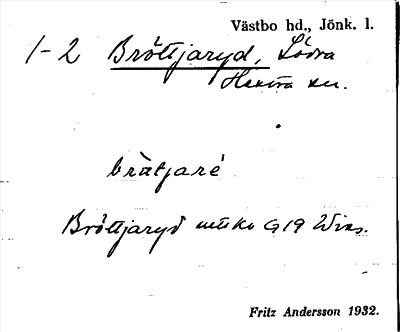 Västbo hd., Jönk. l.
1-2 Bröttjaryd, Södra
Hestra sn.
brätjaré
Bröttjaryd G19
Fritz Andersson 1932.